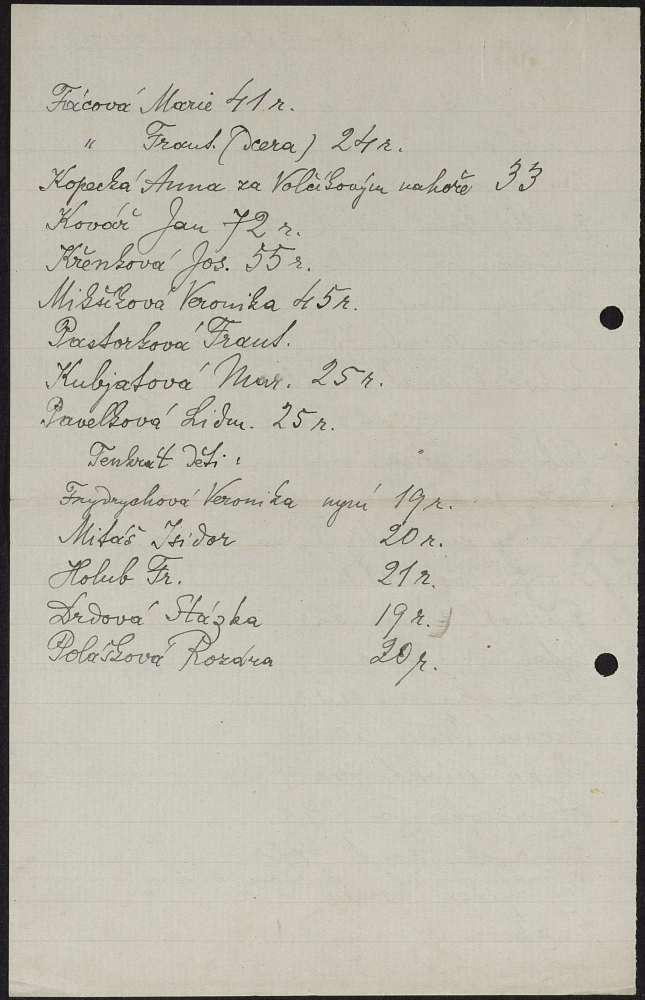 Fácová Marie 41 r.
" Frant. (dcera) 24 r.
Kopecká Anna za Volčíkovým nahoře 33
Kovář Jan 72 r.
Křenková Jos. 55 r.
Mikšíková Veronika 45 r.
Pastorková Frant.
Kubjatová Mar. 25 r.
Pavelková Lidm. 25 r.
Tenkrát děti:
Frydrychová Veronika nyní 19 r.
Mitáš Isidor 20 r.
Holub Fr. 21 r.
Drdová Stázka 19 r.
Polášková Rozára 20 r.